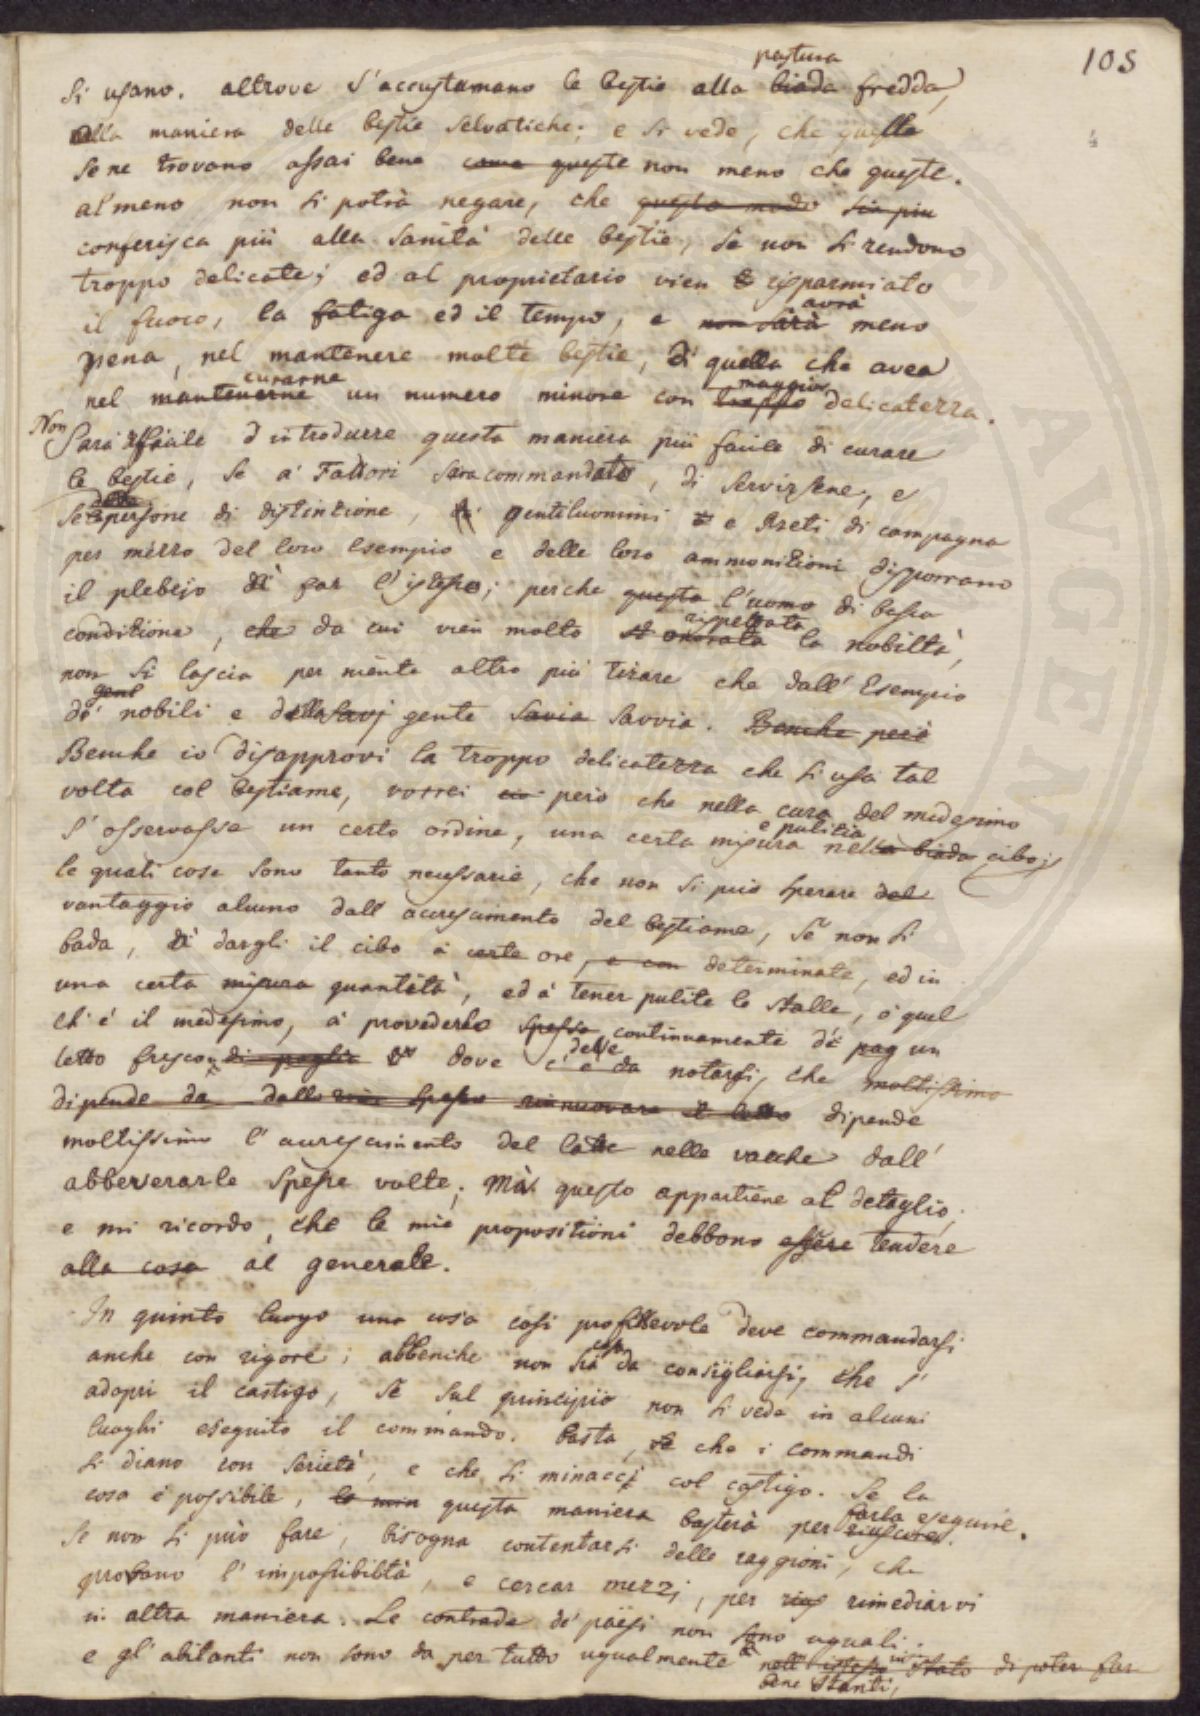 105
si usano. altrove s'accustumano le bestie alla biada pastura fredda,
alla maniera delle bestie selvatiche; e si vede, che quelle
se ne trovano assai bene come queste non meno che queste.
almeno non si potrà negare, che questo modo sia piu
conferisca più alla sanità delle bestie, se non si rendono
troppo delicate; ed al proprietario vien risparmiato
il fuoco, la fatiga ed il tempo, e non sarà avrà meno
pena, nel mantenere molte bestie, di quella che avea
nel mantenerne curarne un numero minore con troppo maggior delicatezza.
Non Sarà facile d'introdurre questa maniera più facile di curare
le bestie, se a' Fattori sara commandato, di servirsene, e
se persone di distintione, gentiluomini e Preti di campagna
per mezzo del loro Esempio e delle loro ammonitioni disporrano
il plebejo di far l'istesso; perche questa l'uomo di bassa
conditione, che da cui vien molto onorata rispettata la nobiltà,
non si lascia per niente altro più tirare che dall' Esempio
de' nobili e della savj gente savia savvia. Benche però
Benche io disapprovi la troppo delicatezza che si usa tal
volta col bestiame, vorrei però che nella cura del medesimo
s'osservasse un certo ordine, una certa misura e pulitia nella biada cibo;
le quali cose sono tanto necessarie, che non si può sperare dal
vantaggio alcuno dall' accrescimento del bestiame, se non si
bada, di dargli il cibo à certe ore, e con determinate, ed in
una certa misura quantità, ed à tener pulite le stalle, ò quel
ch' è il medesimo, à provederle spesso continuamente d' un
letto fresco di paglia dove c'è deve da notarsi, che moltissimo
dipende da dallo spesso rinnuovare il letto dipende
moltissimo l'accrescimento del latte nelle vacche dall'
abbeverarle spesse volte; Mà questo appartiene al detaglio,
e mi ricordo, che le mie propositioni debbono essere tendere
alla cosa al generale.
In quinto luogo una cosa cosi profittevole deve commandarsi
anche con rigore; abbenche non sia da consigliarsi, che s'
adopri il castigo, se sul principio non si veda in alcuni
luoghi eseguito il commando. Basta, che i commandi
si diano con serietà, e che si minacci col castigo. Se la
cosa è possibile, questa maniera basterà per riuscire farla eseguire.
Se non si può fare, bisogna contentarsi delle raggioni, che
provano l'impossibiltà, e cercar mezzi, per rimediarvi
in altra maniera. Le contrade de' paësi non sono uguali.
e gl' abitanti non sono da per tutto ugualmente nell' istesso stato di poter far
bene stanti,